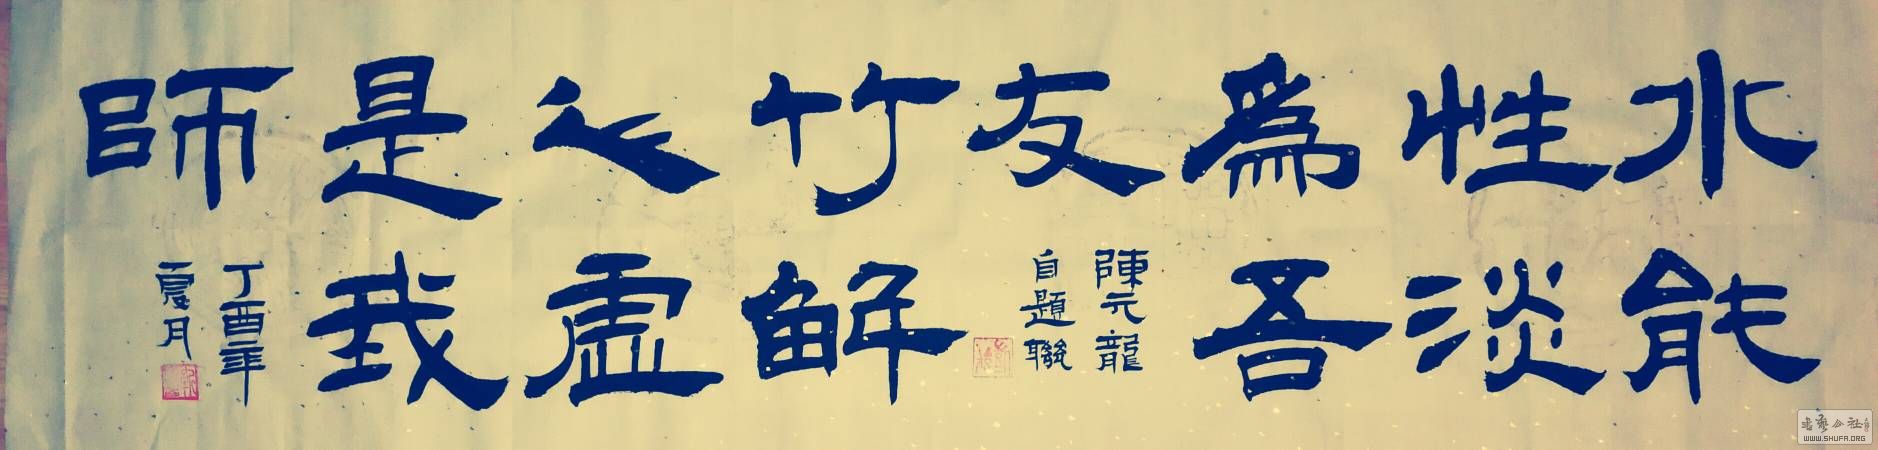 水能
性淡
為吾
友
陳元龍
自題聯
竹解
心虛
是我
師
丁酉年
夏月
书艺公社
WWW.SHUFA.ORG